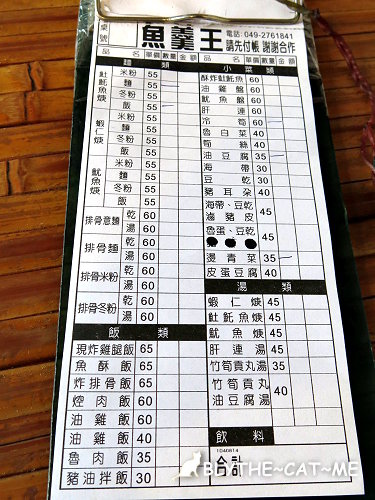 桌號
魚羹王
電話:049-2761841
請先付帳 謝謝合作
品名 單價 數量 金額
麵類
𩵚魠魚焿
米粉 55
麵 55
冬粉 55
飯 55
蝦仁焿
米粉 55
麵 55
冬粉 55
飯 55
魷魚焿
米粉 55
麵 55
冬粉 55
飯 55
排骨意麵
乾 60
湯 60
排骨麵
乾 60
湯 60
排骨米粉
乾 60
湯 60
排骨冬粉
乾 60
湯 60
飯類
現炸雞腿飯 65
魚酥飯 65
炸排骨飯 65
焢肉飯 60
油雞飯 60
油雞 40
魯肉飯 35
豬油拌飯 30
品名 單價 數量 金額
小菜類
酥炸𩵚魠魚 60
油雞盤 60
魷魚盤 60
肝連 60
冷筍 60
魯白菜 40
筍絲 40
油豆腐 35
海帶 30
豆乾 30
豬耳朵 40
海帶、豆乾
滷豬皮 45
魯蛋、豆乾
45
燙青菜 35
皮蛋豆腐 40
湯類
蝦仁焿 45
𩵚魠魚焿 45
魷魚焿 45
肝連湯 45
竹筍貢丸湯 35
竹筍貢丸
油豆腐湯 40
飲料
1040614
合計
BLYTHE~CAT~ME